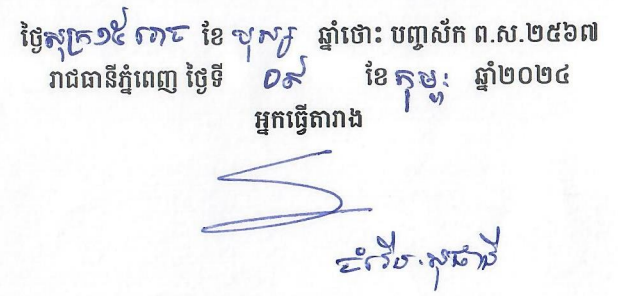 ថ្ងៃសុក្រ១៥ រោច ខែ បុស្ស ឆ្នាំថោះ បញ្ចស័ក ព.ស.២៥៦៧
រាជធានីភ្នំពេញ ថ្ងៃទី ០៩ ខែ កុម្ភៈ ឆ្នាំ២០២៤
អ្នកធ្វើតារាង